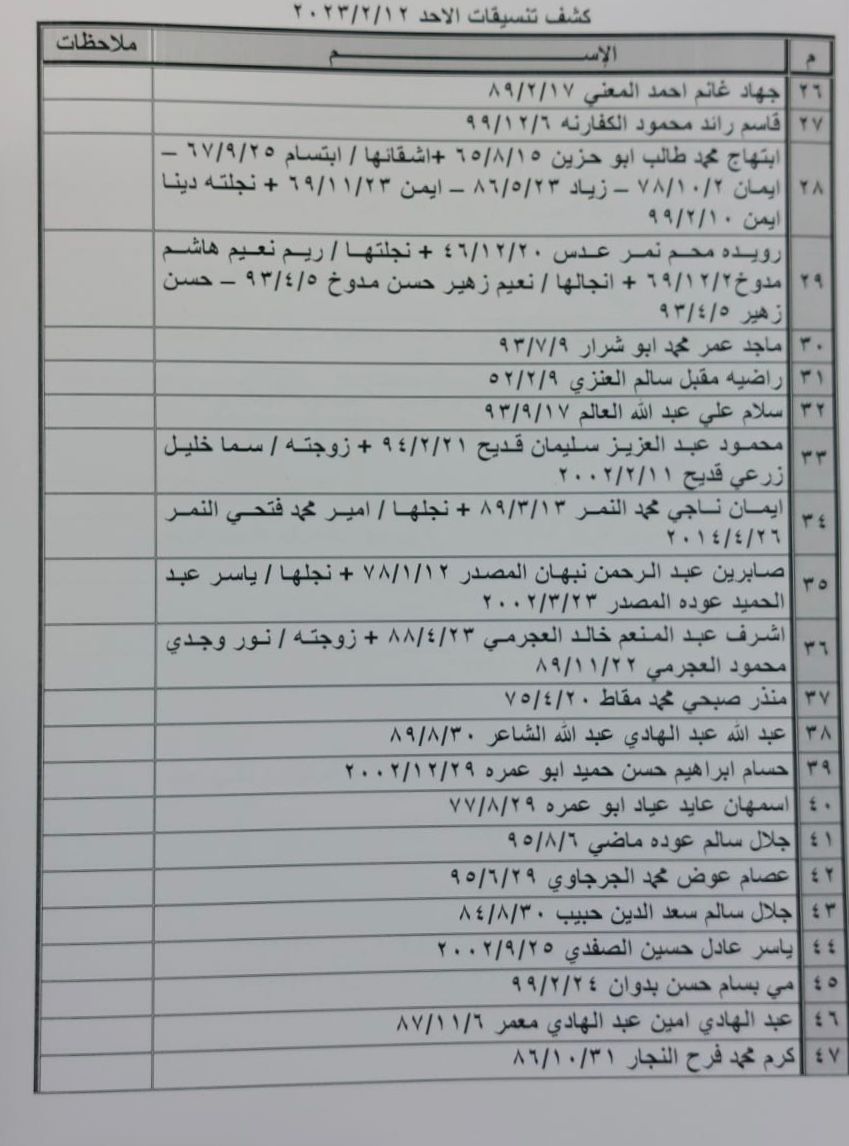 كشف تنسيقات الاحد ٢٠٢٣/٢/١٢
م الإســـــم ملاحظات
٢٦ جهاد غانم احمد المعني ٨٩/٢/١٧
٢٧ قاسم رائد محمود الكفارنه ٩٩/١٢/٦
٢٨ ابتهاج محمد طالب ابو حزين ٦٥/٨/١٥ +اشقائها / ابتسام ٦٧/٩/٢٥ –
ايمان ٧٨/١٠/٢ – زياد ٨٦/٥/٢٣ – ايمن ٦٩/١١/٢٣ + نجلته دينا
ايمن ٩٩/٢/١٠
٢٩ رويده محم نمر عدس ٤٦/١٢/٢٠ + نجلتها / ريم نعيم هاشم
مدوخ٦٩/١٢/٢ + انجالها / نعيم زهير حسن مدوخ ٩٣/٤/٥ – حسن
زهير ٩٣/٤/٥
٣٠ ماجد عمر محمد ابو شرار ٩٣/٧/٩
٣١ راضيه مقبل سالم العنزي ٥٢/٢/٩
٣٢ سلام علي عبد الله العالم ٩٣/٩/١٧
٣٣ محمود عبد العزيز سليمان قديح ٩٤/٢/٢١ + زوجته / سما خليل
زرعي قديح ٢٠٠٢/٢/١١
٣٤ ايمان ناجي محمد النمر ٨٩/٣/١٣ + نجلها / امير محمد فتحي النمر
٢٠١٤/٤/٢٦
٣٥ صابرين عبد الرحمن نبهان المصدر ٧٨/١/١٢ + نجلها / ياسر عبد
الحميد عوده المصدر ٢٠٠٢/٣/٢٣
٣٦ اشرف عبد المنعم خالد العجرمي ٨٨/٤/٢٣ + زوجته / نور وجدي
محمود العجرمي ٨٩/١١/٢٢
٣٧ منذر صبحي محمد مقاط ٧٥/٤/٢٠
٣٨ عبد الله عبد الهادي عبد الله الشاعر ٨٩/٨/٣٠
٣٩ حسام ابراهيم حسن حميد ابو عمره ٢٠٠٢/١٢/٢٩
٤٠ اسمهان عايد عياد ابو عمره ٧٧/٨/٢٩
٤١ جلال سالم عوده ماضي ٩٥/٨/٦
٤٢ عصام عوض محمد الجرجاوي ٩٥/٦/٢٩
٤٣ جلال سالم سعد الدين حبيب ٨٤/٨/٣٠
٤٤ ياسر عادل حسين الصفدي ٢٠٠٢/٩/٢٥
٤٥ مي بسام حسن بدوان ٩٩/٢/٢٤
٤٦ عبد الهادي امين عبد الهادي معمر ٨٧/١١/٦
٤٧ كرم محمد فرح النجار ٨٦/١٠/٣١